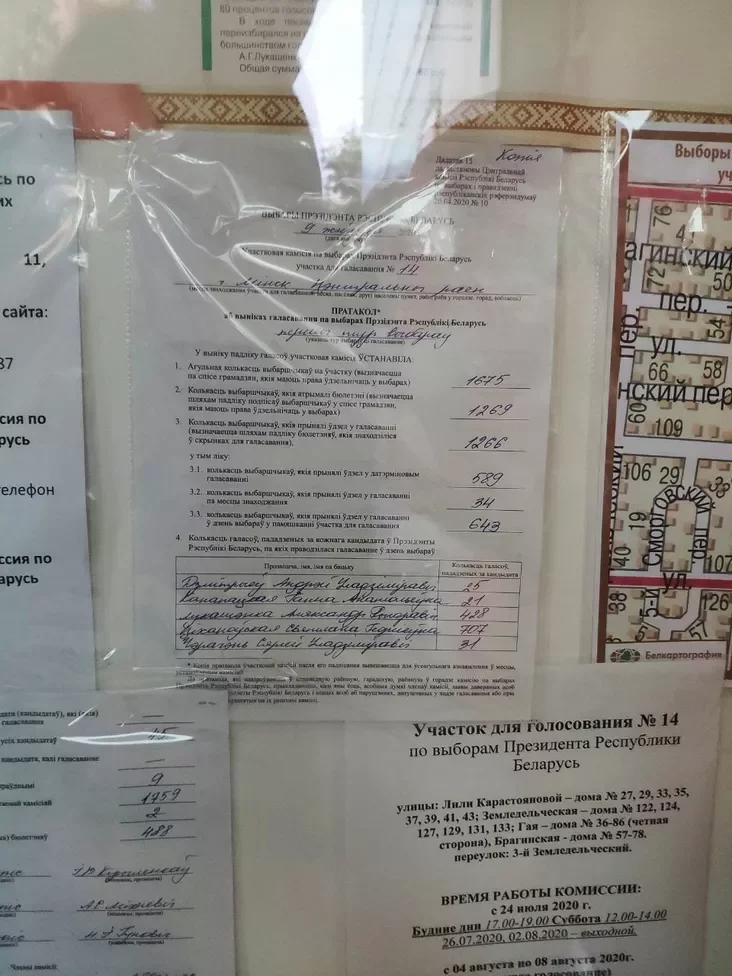 80 процентов голосов
В ходе
переизбирался на
большинством гол
А.Г.Лукашенк
Общая сумма
Копія
Дадатак 15
да пастановы Цэнтральнай
камісіі Рэспублікі Беларусь
па выбарах і правядзенні
рэспубліканскіх рэферэндумаў
20.04.2020 № 10
ВЫБАРЫ ПРЭЗІДЭНТА РЭСПУБЛІКІ БЕЛАРУСЬ
9 жніўня 2020
Участковая камісія па выбарах Прэзідэнта Рэспублікі Беларусь
участка для галасавання № 14
г. Мінск, Цэнтральны раён
ПРАТАКОЛ*
аб выніках галасавання па выбарах Прэзідэнта Рэспублікі Беларусь
першы тур выбараў
У выніку падліку галасоў участковая камісія ЎСТАНАВІЛА:
1. Агульная колькасць выбаршчыкаў на ўчастку (вызначаецца
па спісе грамадзян, якія маюць права ўдзельнічаць у выбарах)
1675
2. Колькасць выбаршчыкаў, якія атрымалі бюлетэні (вызначаецца
шляхам падліку подпісаў выбаршчыкаў у спісе грамадзян,
якія маюць права ўдзельнічаць у выбарах)
1269
3. Колькасць выбаршчыкаў, якія прынялі ўдзел у галасаванні
(вызначаецца шляхам падліку бюлетэняў, якія знаходзіліся
ў скрынках для галасавання),
1266
у тым ліку:
3.1. колькасць выбаршчыкаў, якія прынялі ўдзел у датэрміновым
галасаванні
589
3.2. колькасць выбаршчыкаў, якія прынялі ўдзел у галасаванні
па месцы знаходжання
34
3.3. колькасць выбаршчыкаў, якія прынялі ўдзел у галасаванні
ў дзень выбараў у памяшканні ўчастка для галасавання
643
4. Колькасць галасоў, пададзеных за кожнага кандыдата ў Прэзідэнты
Рэспублікі Беларусь, па якіх праводзілася галасаванне ў дзень выбараў
Прозвішча, імя, імя па бацьку Колькасць галасоў, пададзеных за кандыдата
Дзмітрыеў Андрэй Уладзіміравіч 25
Канапацкая Ганна Анатольеўна 21
Лукашэнка Аляксандр Рыгоравіч 428
Ціханоўская Святлана Георгіеўна 707
Чэрачэнь Сяргей Уладзіміравіч 31
* Копія пратакола участковай камісіі пасля яго падпісання вывешваецца для ўсеагульнага азнаямлення ў месцы,
сь по
их
11,
сайта:
87
ссия по
арусь
телефон
ссия по
арусь
Выборы
уч
76
4
агинский
72
50
пер.
54
пер.
ул.
66 58
нский пер
60
109
106 29
33
19
Сморговский пер.
107
40
ул.
38
5-й
57
126
Белкартография
—
45
—
9
1759
2
488
Участок для голосования № 14
по выборам Президента Республики
Беларусь
улицы: Лили Карастояновой – дома № 27, 29, 33, 35,
37, 39, 41, 43; Земледельческая – дома № 122, 124,
127, 129, 131, 133; Гая – дома № 36-86 (четная
сторона), Брагинская - дома № 57-78.
переулок: 3-й Земледельческий.
ВРЕМЯ РАБОТЫ КОМИССИИ:
с 24 июля 2020 г.
Будние дни 17.00-19.00 Суббота 12.00-14.00
26.07.2020, 02.08.2020 – выходной.
с 04 августа по 08 августа 2020г.